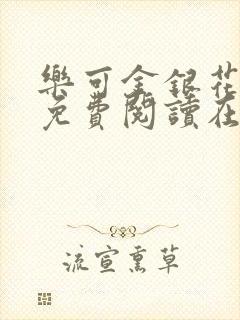 樂可金銀花
免費閱讀在
流宣熏草